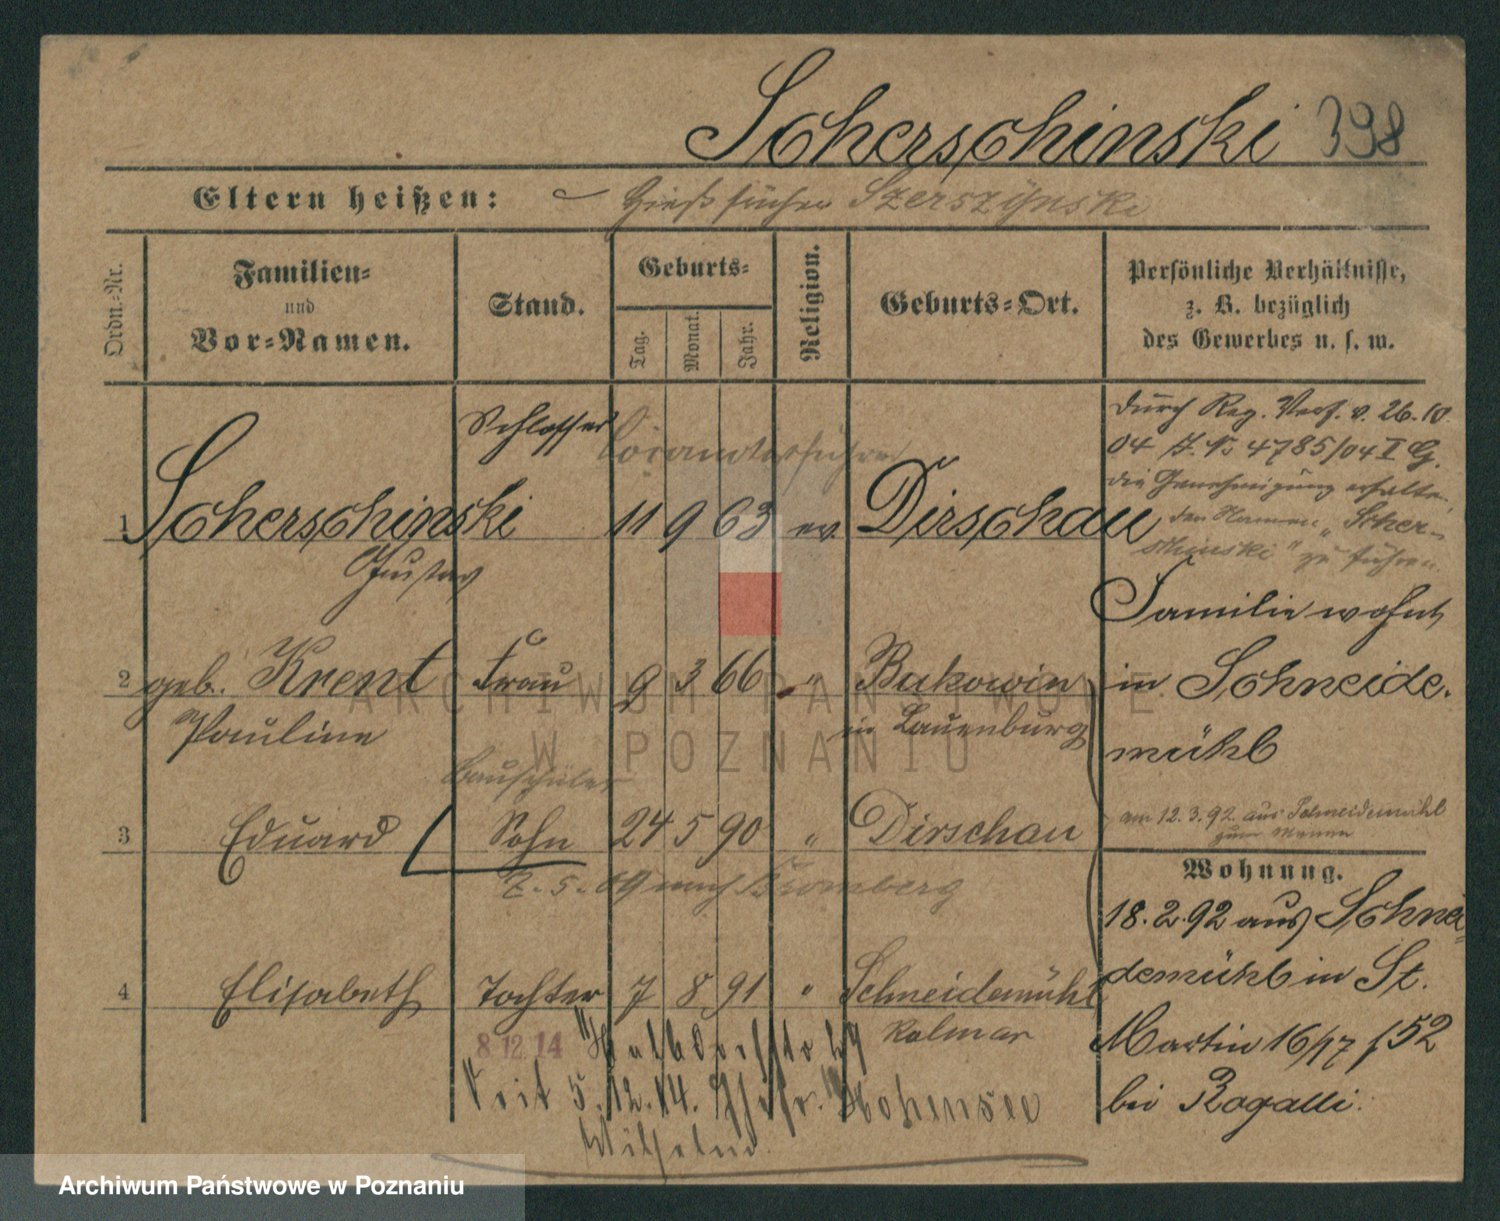 Scherschinski 398
Eltern heißen: Hieß früher Szerszynski
Ordn.-Nr.
Familien-
und
Vor-Namen.
Stand.
Geburts-
Tag.
Monat.
Jahr.
Religion.
Geburts-Ort.
Persönliche Verhältnisse,
z. B. bezüglich
des Gewerbes u. s. w.
Schlosser
durch Reg. Verf. v. 26.10.
04 J. N. 4785/04 I G.
die Genehmigung erhalten,
den Namen "Scher-
schinski" zu führen.
1 Scherschinski 11 9 63 ev. Dirschau
Gustav
Familie wohnt
in Schneide-
mühl
2 geb. Krent Frau 9 3 66 " Bukowin
Pauline in Lauenburg
Bauschüler
am 12.3.92 aus Schneidemühl
3 Eduard Sohn 24 5 90 " Dirschau
7.5.09 nach Bromberg
Wohnung.
18.2.92 aus Schnei-
demühl in St.
Martin 16/17 f 52
bei Rogalli.
4 Elisabeth Tochter 7 8 91 " Schneidemühl
Kolmar
8 12 14
seit 5.12.14. Hohensee
Wilhelm
ARCHIWUM PAŃSTWOWE
W POZNANIU
Archiwum Państwowe w Poznaniu